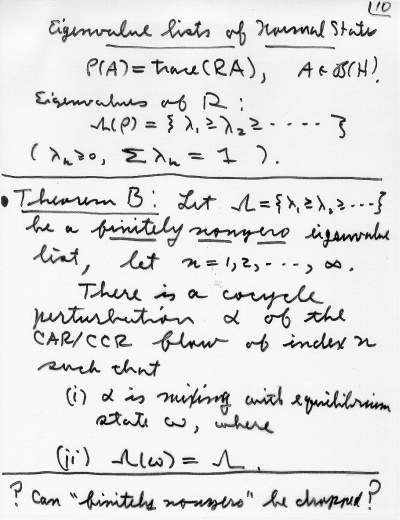 110
Eigenvalue lists of Normal States
ρ(A) = trace(RA), A ∈ B(H).
Eigenvalues of R:
Λ(ρ) = {λ₁ ≥ λ₂ ≥ ····· }
(λₙ ≥ 0, Σλₙ = 1).
• Theorem B: Let Λ = {λ₁ ≥ λ₂ ≥ ···}
be a finitely nonzero eigenvalue
list, let n = 1, 2, ···, ∞.
There is a cocycle
perturbation α of the
CAR/CCR flow of index n
such that
(i) α is mixing with equilibrium
state ω, where
(ii) Λ(ω) = Λ.
? Can "finitely nonzero" be dropped?